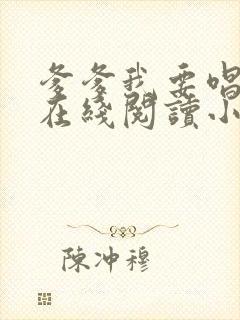 爹爹我要唱
在綫閱讀小
陳冲穆